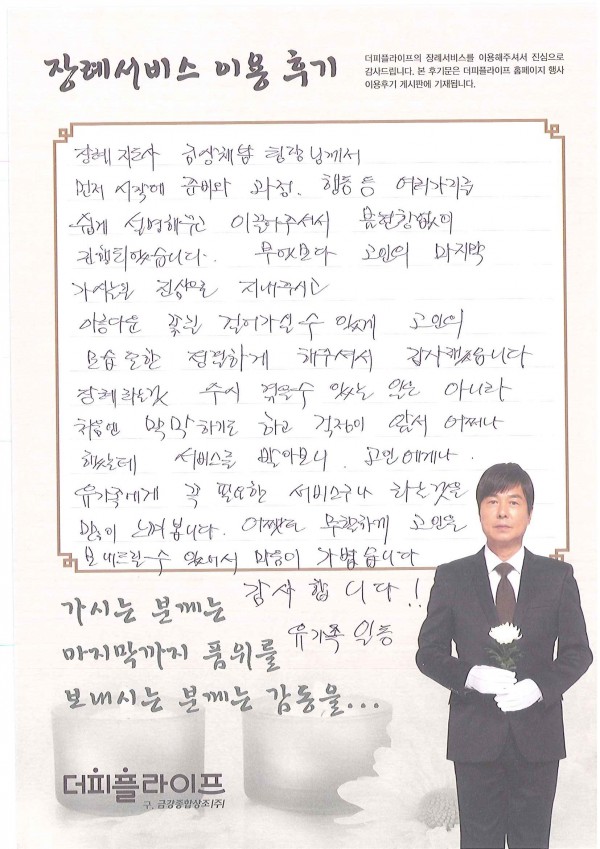 장례서비스 이용 후기
더피플라이프의 장례서비스를 이용해주셔서 진심으로
감사드립니다. 본 후기문은 더피플라이프 홈페이지 행사
이용후기 게시판에 기재됩니다.
장례 지도사 팀장님께서
먼저 시작에 준비와 과정, 행동 등 여러가지를
쉽게 설명해주고 이끌어주셔서
진행되었습니다. 무엇보다 고인의 마지막
가시는 지내주시고
아름다운 꽃길 걸어가실 수 있게 고인의
모습 또한 정결하게 해주셔서 감사했습니다
장례라는것 수시 겪을수 있는 일은 아니라
처음엔 막막하기도 하고 걱정이 앞서 어쩌나
했는데 서비스를 받아보니. 고인에게나.
유가족에게 꼭 필요한 서비스구나 라는것을
많이 느껴봅니다. 어쨌든 무탈하게 고인을
보내드릴수 있어서 마음이 가볍습니다
감사합니다!!
유가족 일동
가시는 분께는
마지막까지 품위를
보내시는 분께는 감동을...
더피플라이프
구. 금강종합상조(주)